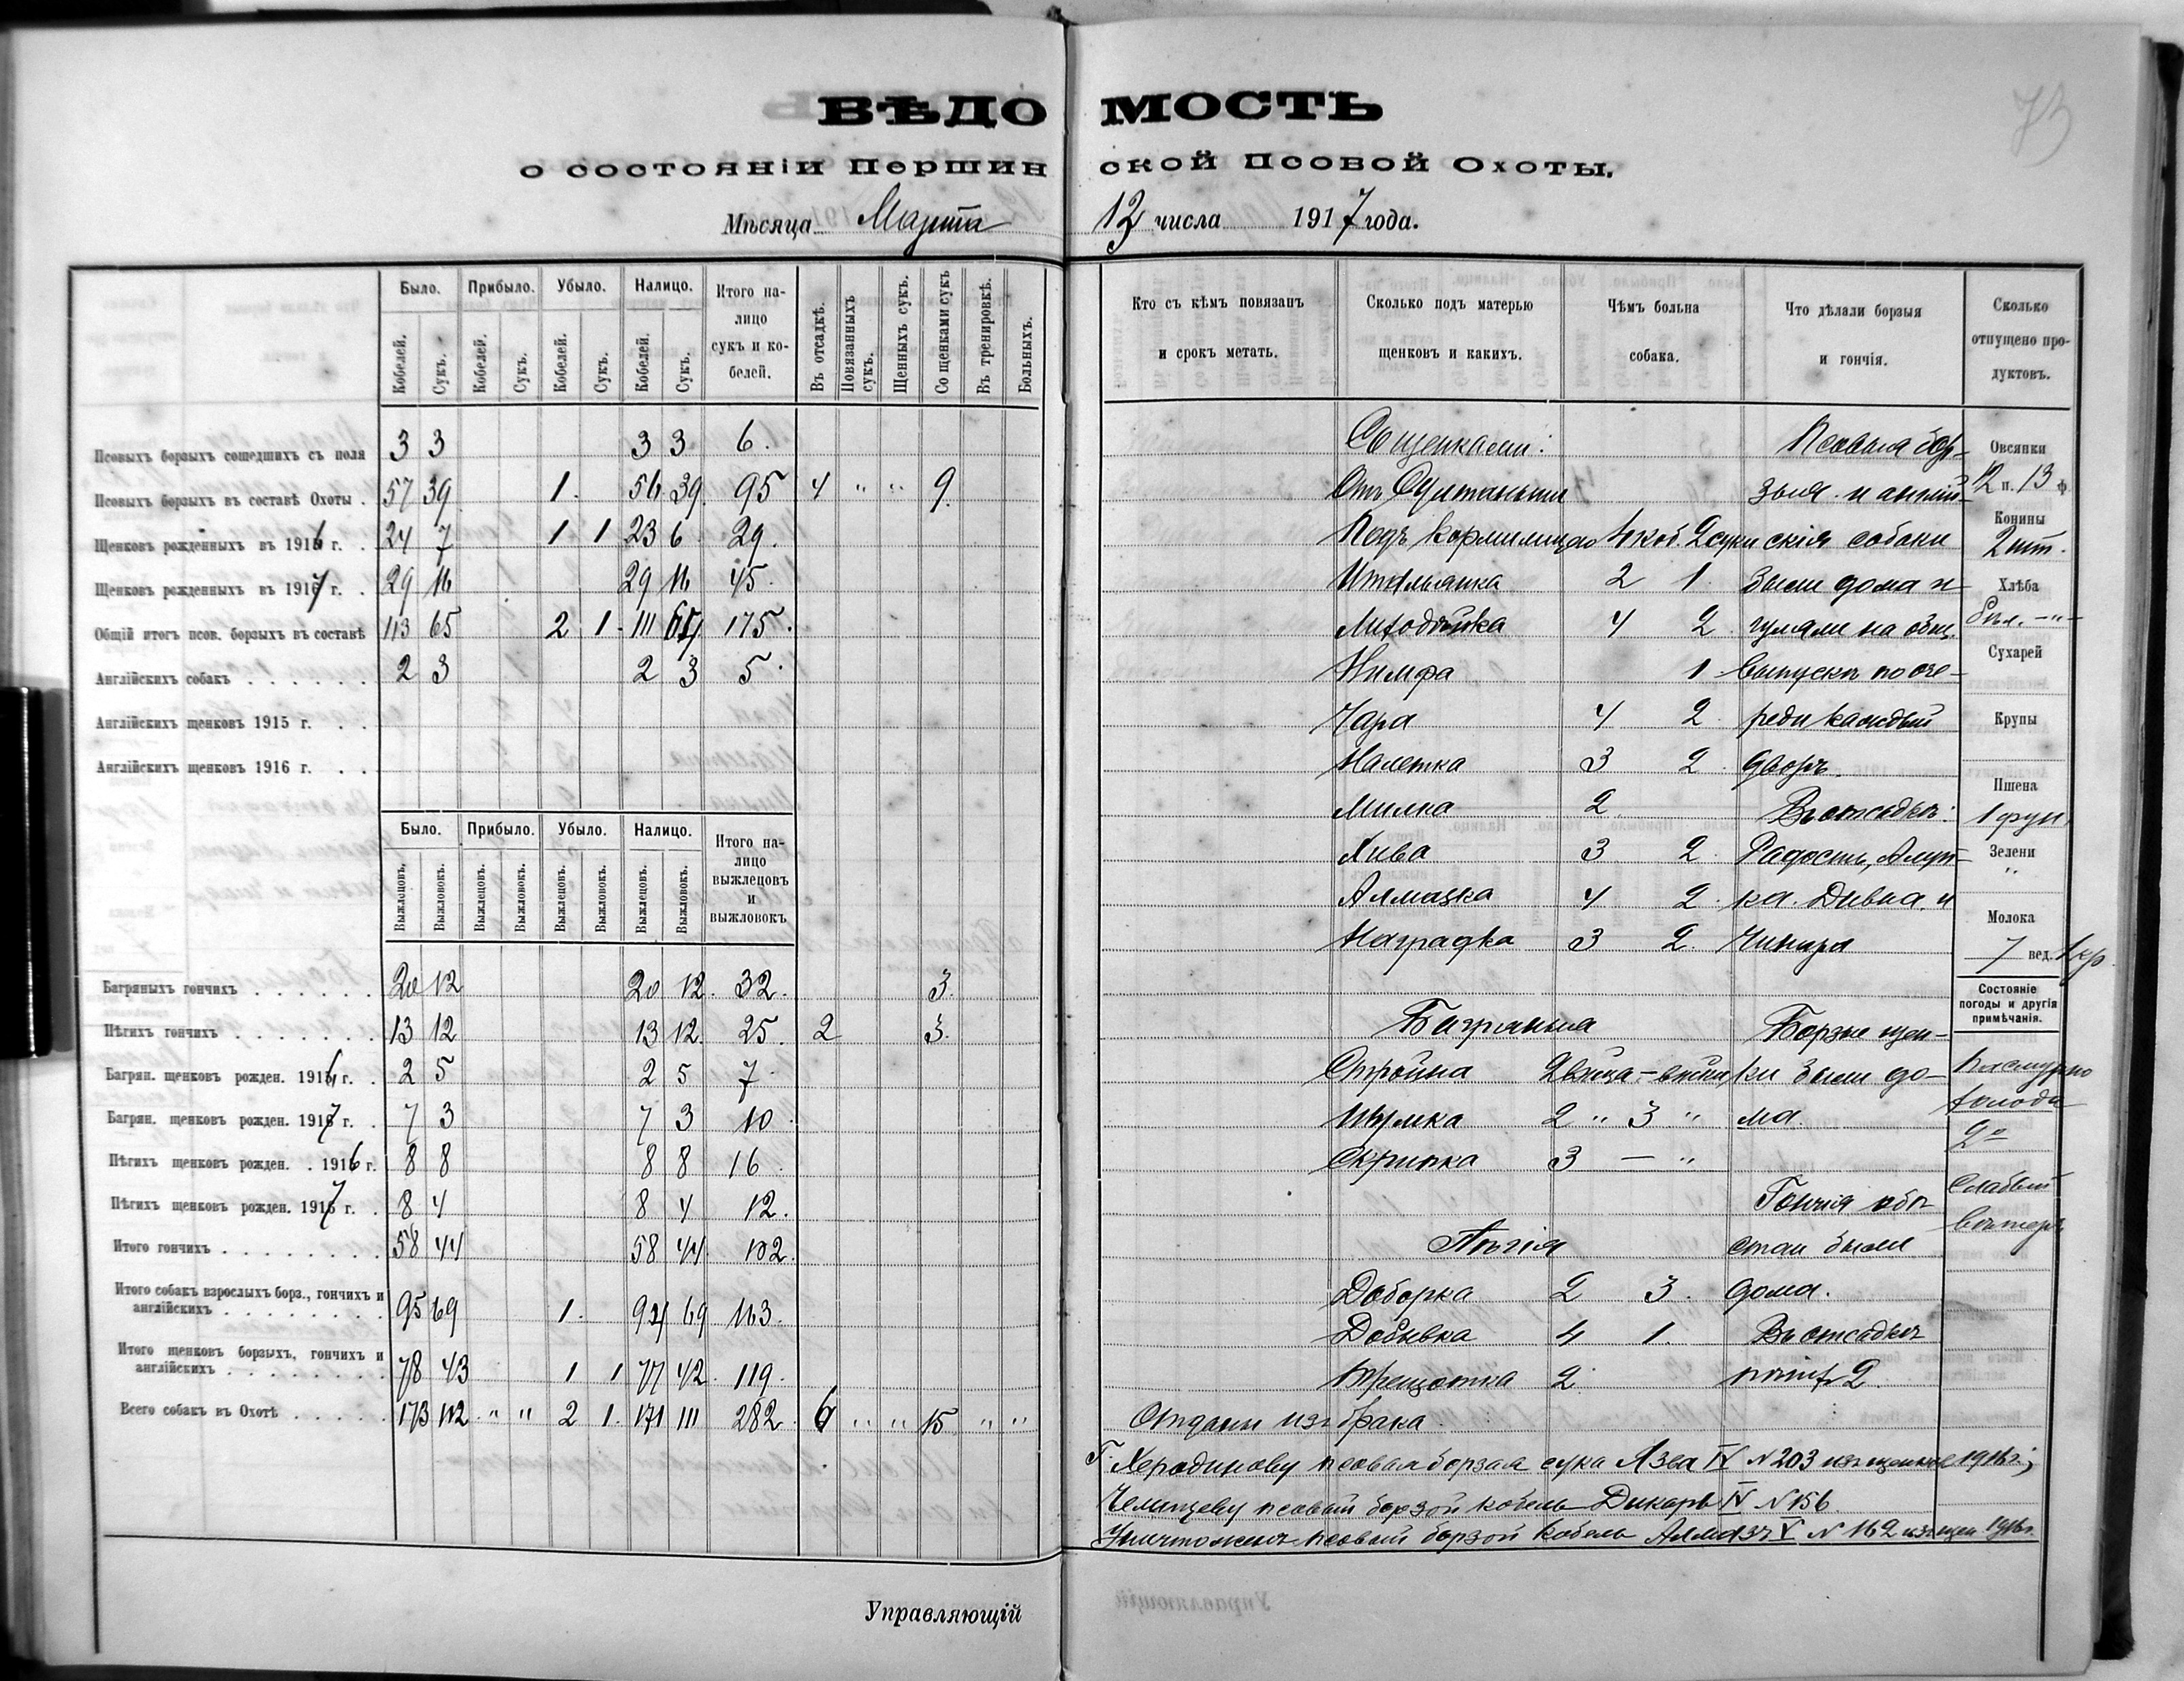 73
ВѢДОМОСТЬ
о состоянiи Першинской Псовой Охоты.
Мѣсяца Марта 12 числа 1917 года.
Было. Прибыло. Убыло. Налицо. Итого налицо сукъ и кобелей. Въ отсадкѣ. Повязанныхъ сукъ. Щенныхъ сукъ. Со щенками сукъ Въ тренировкѣ. Больныхъ.
Кобелей. Сукъ. Кобелей. Сукъ. Кобелей. Сукъ. Кобелей. Сукъ.
Псовыхъ борзыхъ сошедшихъ съ поля 3 3 3 3 6.
Псовыхъ борзыхъ въ составѣ Охоты . 57 39 1. 56 39. 95 4 " " 9.
Щенковъ рожденныхъ въ 1916 г. . 24 7 1 1 23 6. 29.
Щенковъ рожденныхъ въ 1917 г. . 29 16 29 16 45.
Общій итогъ псов. борзыхъ въ составѣ 113 65 2 1. 111 64. 175.
Англійскихъ собакъ . . . . . . 2 3 2 3 5.
Англійскихъ щенковъ 1915 г. . .
Англійскихъ щенковъ 1916 г. . .
Было. Прибыло. Убыло. Налицо. Итого налицо выжлецовъ и выжловокъ
Выжлецовъ. Выжловокъ. Выжлецовъ. Выжловокъ. Выжлецовъ. Выжловокъ. Выжлецовъ. Выжловокъ.
Багряныхъ гончихъ . . . . . . 20 12 20 12. 32. 3.
Пѣгихъ гончихъ . . . . . . . 13 12 13 12. 25. 2 3.
Багрян. щенковъ рожден. 1916 г. . 2 5 2 5 7.
Багрян. щенковъ рожден. 1917 г. . 7 3 7 3 10.
Пѣгихъ щенковъ рожден. . 1916 г. 8 8 8 8 16.
Пѣгихъ щенковъ рожден. 1917 г. . 8 4 8 4 12.
Итого гончихъ . . . . . . . . 58 44 58 44 102.
Итого собакъ взрослыхъ борз., гончихъ и
англійскихъ . . . . . . . . 95 69 1. 94 69 163.
Итого щенковъ борзыхъ, гончихъ и
англійскихъ . . . . . . . . 78 43 1 1 77 42. 119.
Всего собакъ въ Охотѣ . . . . . 173 112 " " 2 1. 171 111 282. 6 " " 15 " "
Управляющій
Кто съ кѣмъ повязанъ и срокъ метать.
Сколько подъ матерью щенковъ и какихъ.
Чѣмъ больна собака.
Что дѣлали борзыя и гончія.
Сколько отпущено продуктовъ.
Со щенками:
Отъ Султаньши
Подъ кормилицею 4 коб. 2 суки
Итальянка 2 1.
Лиходѣйка 4 2.
Нимфа 1
Чара 4 2.
Налетка 3 2.
Милка 2.
Хива 3 2.
Алмазка 4 2.
Наградка 3 2.
Багряныя
Стройна
Шумка 2 " 3 "
Скрипка 3 — "
Пѣгія
Доборка 2 3.
Добывка 4 1.
Трещотка 2.
Псовыя бор-
зыя и англій-
скія собаки
были дома и
гуляли на общ.
выпускѣ по оче-
реди каждый
дворъ.
Въ отсадкѣ:
Радость,
ка. Дивна и
Чинара
Борзые щен-
ки были до-
ма.
Гончія обѣ
стаи были
дома.
Въ отсадкѣ
2.
Овсянки
12 п. 13 ф
Конины
2 шт.
Хлѣба
Сухарей
Крупы
Пшена
1 фун.
Зелени
"
Молока
7 вед. 1 кр.
Состояніе погоды и другія примѣчанія.
Пасмурно
холода
2°
Слабый
вѣтеръ
Отданы изъ брака.
Г. Херодинову псовая борзая сука Язва IV N 203 изъ щенковъ 1916 г.;
Челищеву псовый борзой кобель Дикарь IV N 156.
Уничтоженъ псовый борзой кобель Алмазъ V N 162 изъ щен 1916 г.